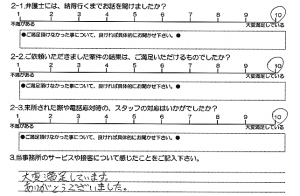 2-1.弁護士には、納得行くまでお話を聞けましたか?
1 2 3 4 5 6 7 8 9 10
不満がある 大変満足している
●ご満足頂けなかった事について、良ければ具体的にお聞かせ下さい。●
2-2.ご依頼いただきました案件の結果は、ご満足いただけるものでしたか?
1 2 3 4 5 6 7 8 9 10
不満がある 大変満足している
●ご満足頂けなかった事について、良ければ具体的にお聞かせ下さい。●
2-3.来所された際や電話応対時の、スタッフの対応はいかがでしたか?
1 2 3 4 5 6 7 8 9 10
不満がある 大変満足している
●ご満足頂けなかった事について、良ければ具体的にお聞かせ下さい。●
3.当事務所のサービスや接客について感じたことをご記入下さい。
大変満足しています。
ありがとうございました。